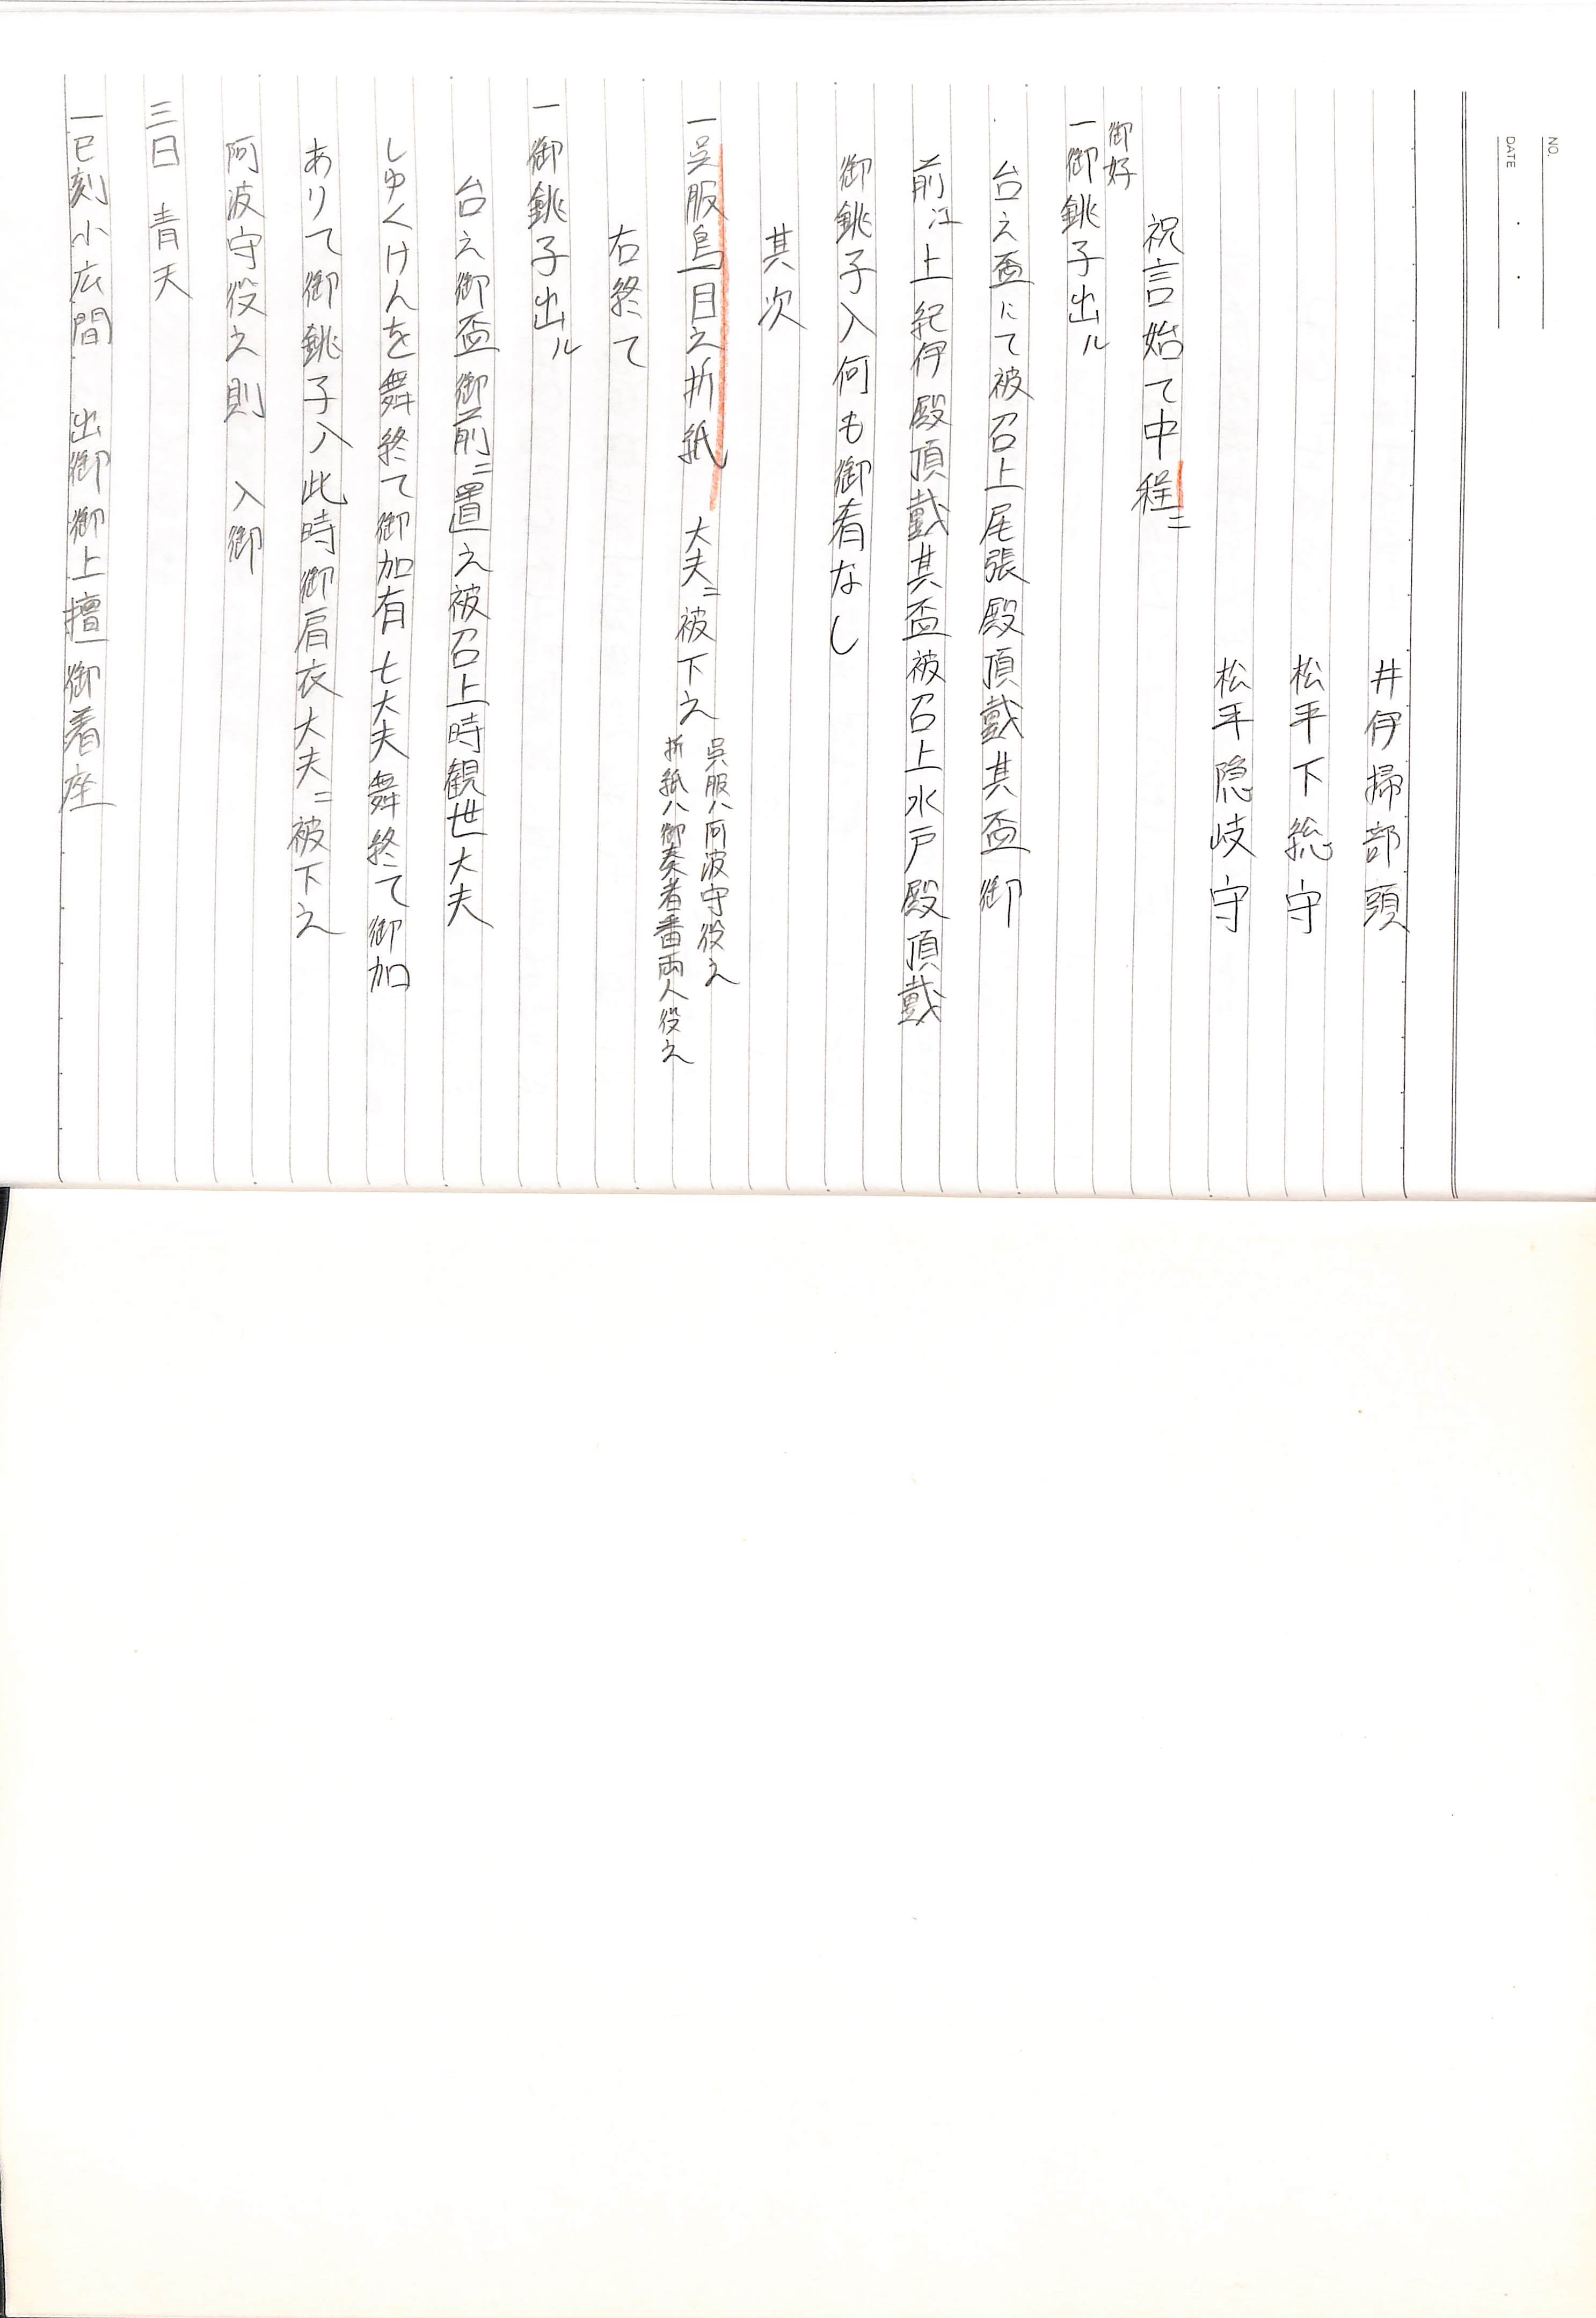 NO.
DATE
井伊掃部頭
松平下総守
松平隠岐守
祝言始て中程ニ
御好
一御銚子出ル
台之盃にて被召上尾張殿頂戴其盃御
前江上紀伊殿頂戴其盃被召上水戸殿頂戴
御銚子入何も御肴なし
其次
一呉服鳥目之折紙 大夫ニ被下之
呉服ハ阿波守役之
折紙ハ御奏者番両人役之
右終て
一御銚子出ル
台之御盃御前ニ置之被召上時観世大夫
しゆくけんを舞終て御加有七大夫舞終て御加
ありて御銚子入此時御肩衣大夫ニ被下之
阿波守役之則 入御
三日 青天
一巳刻小広間 出御御上壇御着座